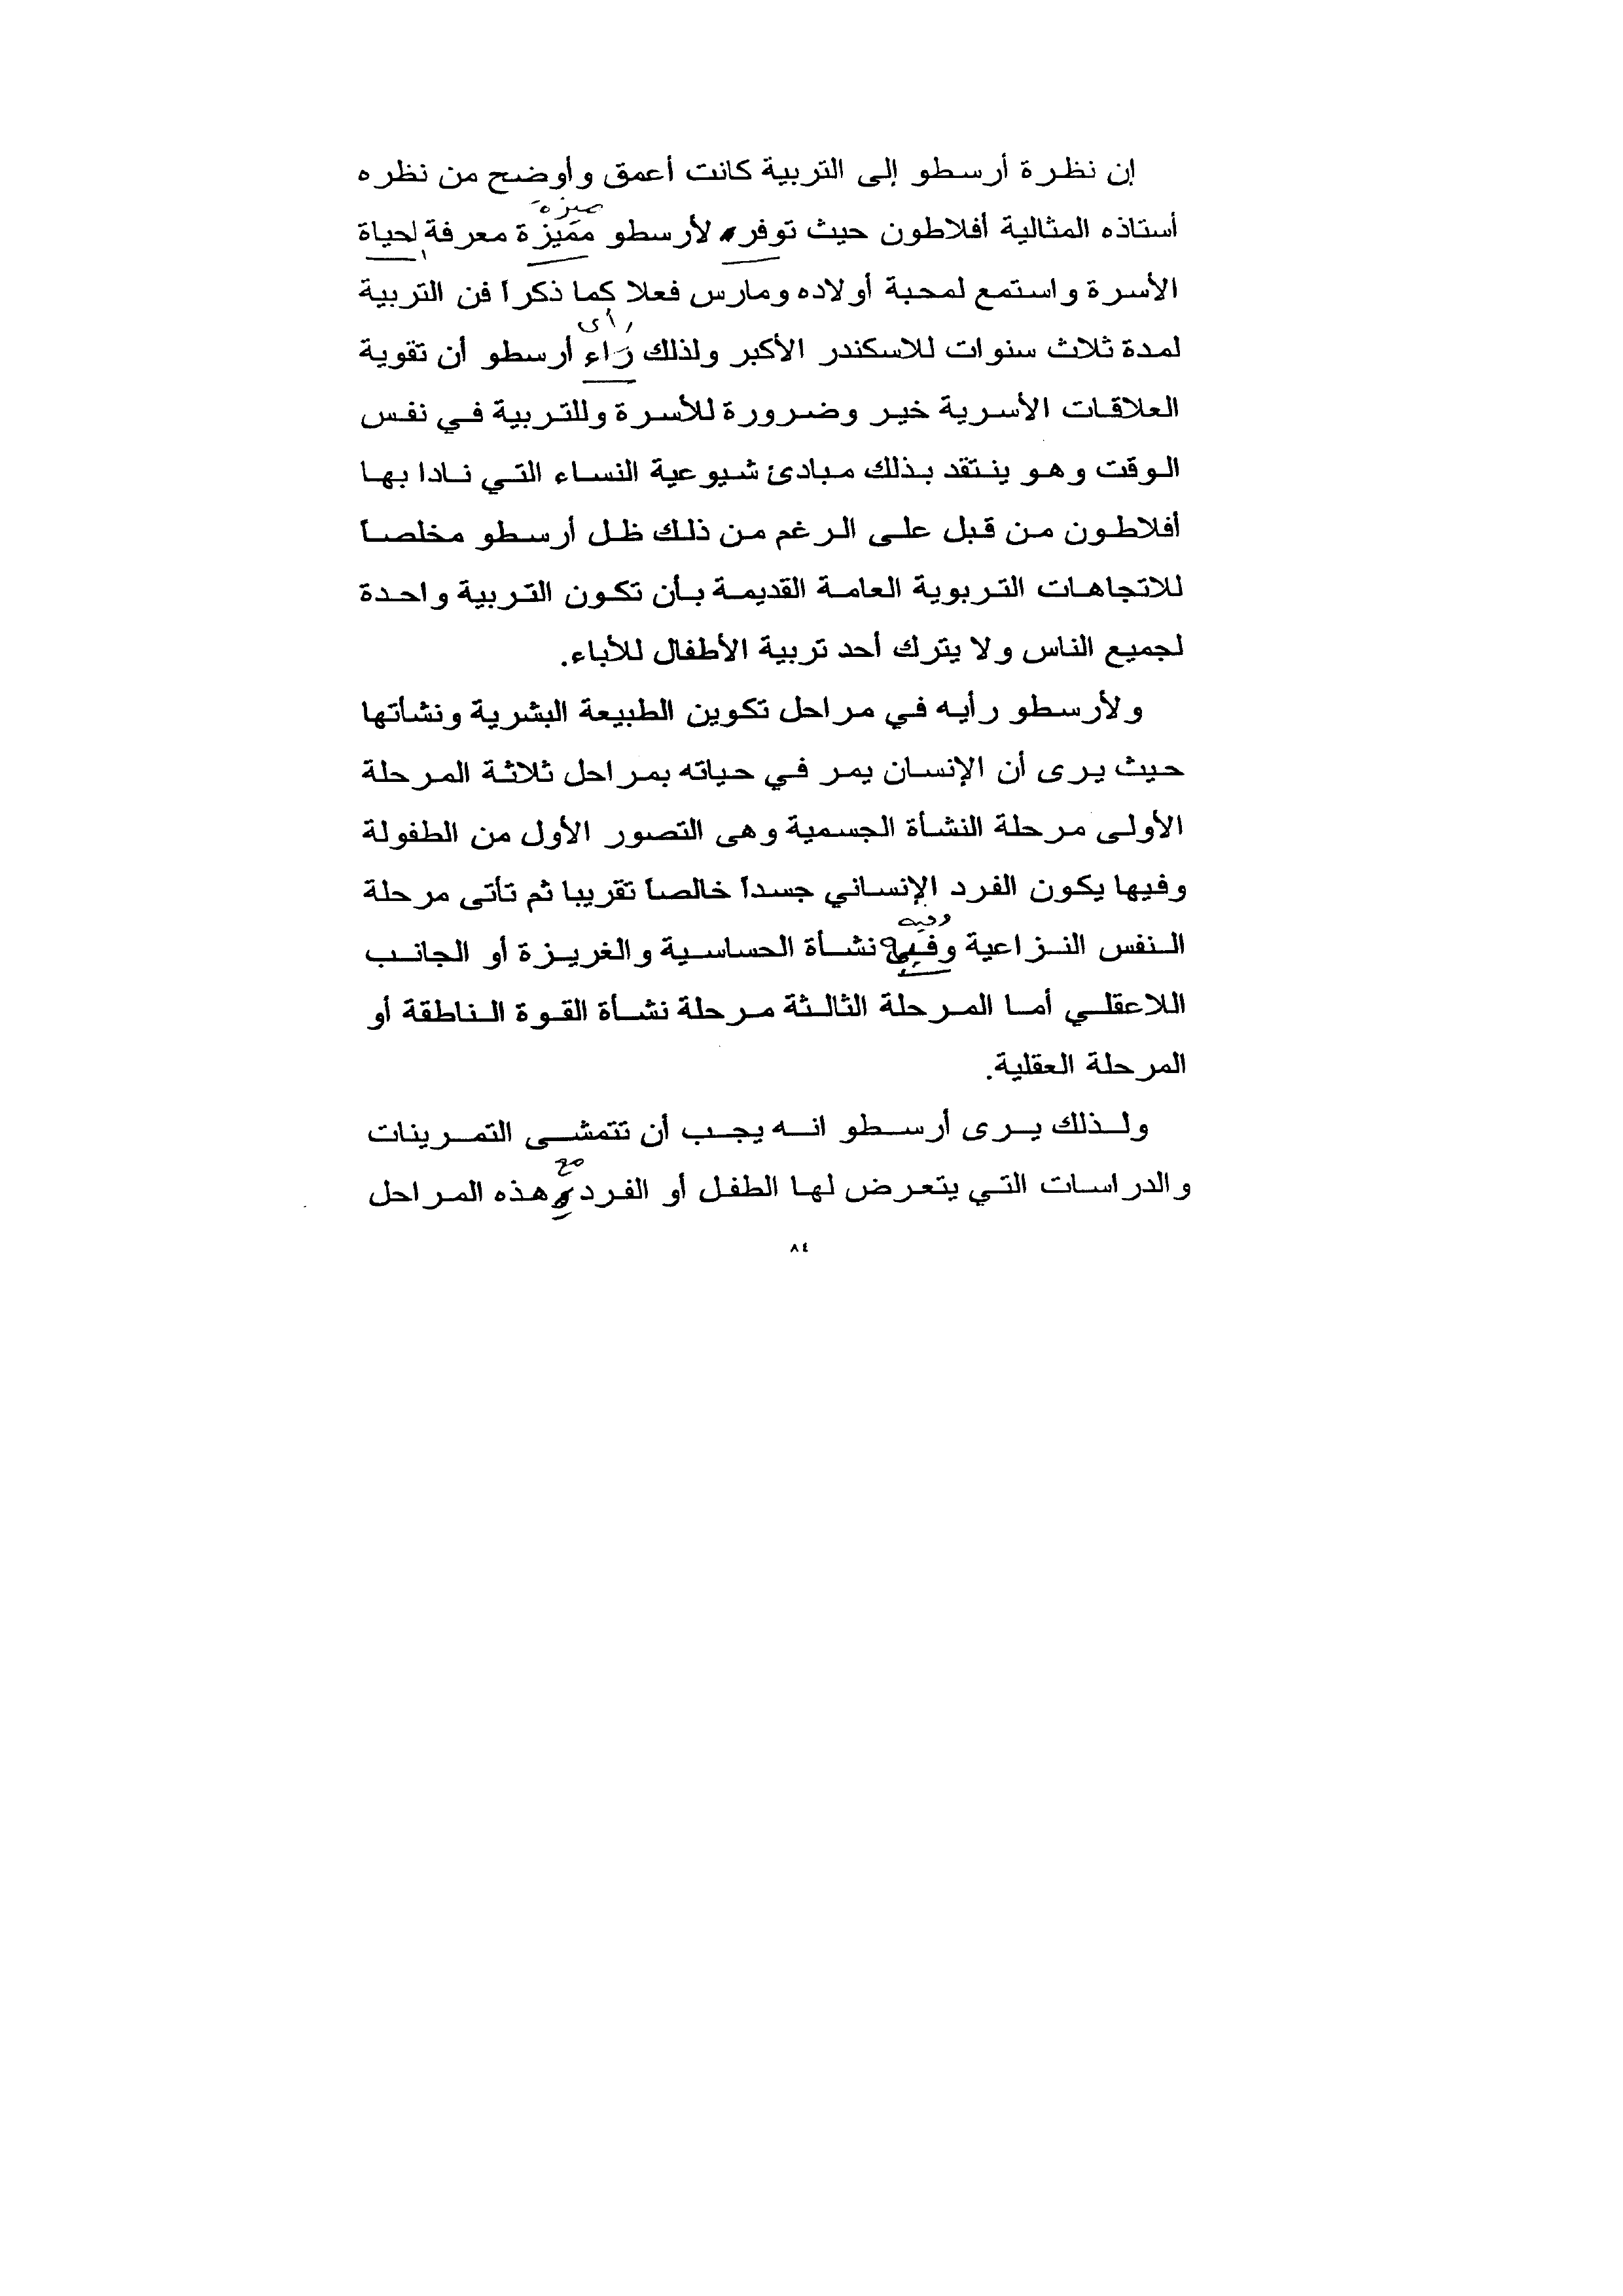 إن نظرة أرسطو إلى التربية كانت أعمق وأوضح من نظره
ميزة
أستاذه المثالية أفلاطون حيث توفر لأرسطو مميزة معرفة لحياة
الأسرة واستمع لمحبة أولاده ومارس فعلا كما ذكرا فن التربية
رأى
لمدة ثلاث سنوات للاسكندر الأكبر ولذلك راء أرسطو أن تقوية
العلاقات الأسرية خير وضرورة للأسرة وللتربية في نفس
الوقت وهو ينتقد بذلك مبادئ شيوعية النساء التي نادا بها
أفلاطون من قبل على الرغم من ذلك ظل أرسطو مخلصاً
للاتجاهات التربوية العامة القديمة بأن تكون التربية واحدة
لجميع الناس ولا يترك أحد تربية الأطفال للأباء.
ولأرسطو رأيه في مراحل تكوين الطبيعة البشرية ونشأتها
حيث يرى أن الإنسان يمر في حياته بمراحل ثلاثة المرحلة
الأولى مرحلة النشأة الجسمية وهى التصور الأول من الطفولة
وفيها يكون الفرد الإنساني جسداً خالصاً تقريبا ثم تأتى مرحلة
وفيه
النفس النزاعية وفي نشأة الحساسية والغريزة أو الجانب
اللاعقلي أما المرحلة الثالثة مرحلة نشأة القوة الناطقة أو
المرحلة العقلية.
ولذلك يرى أرسطو انه يجب أن تتمشى التمرينات
مع
والدراسات التي يتعرض لها الطفل أو الفرد و هذه المراحل
٨٤